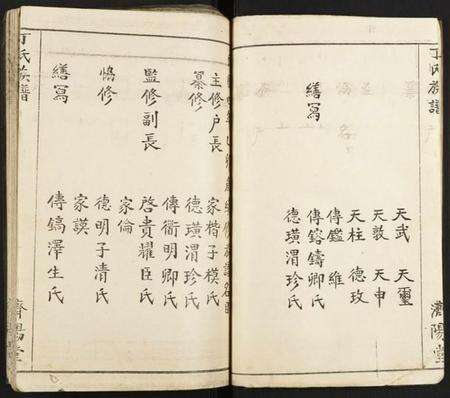 丁氏族譜
天武 天璽
天敦 天申
天柱 德玫
傳鑑 維
傳鎔鑄卿氏
繕寫
德璜渭珍氏
濟陽堂
主修户長
家楷子模氏
纂修
德璜渭珍氏
傳衢明卿氏
監修副長
啓貴耀臣氏
家倫
協修
德明子清氏
家謨
繕寫
傳鎬澤生氏
丁氏族譜
濟陽堂